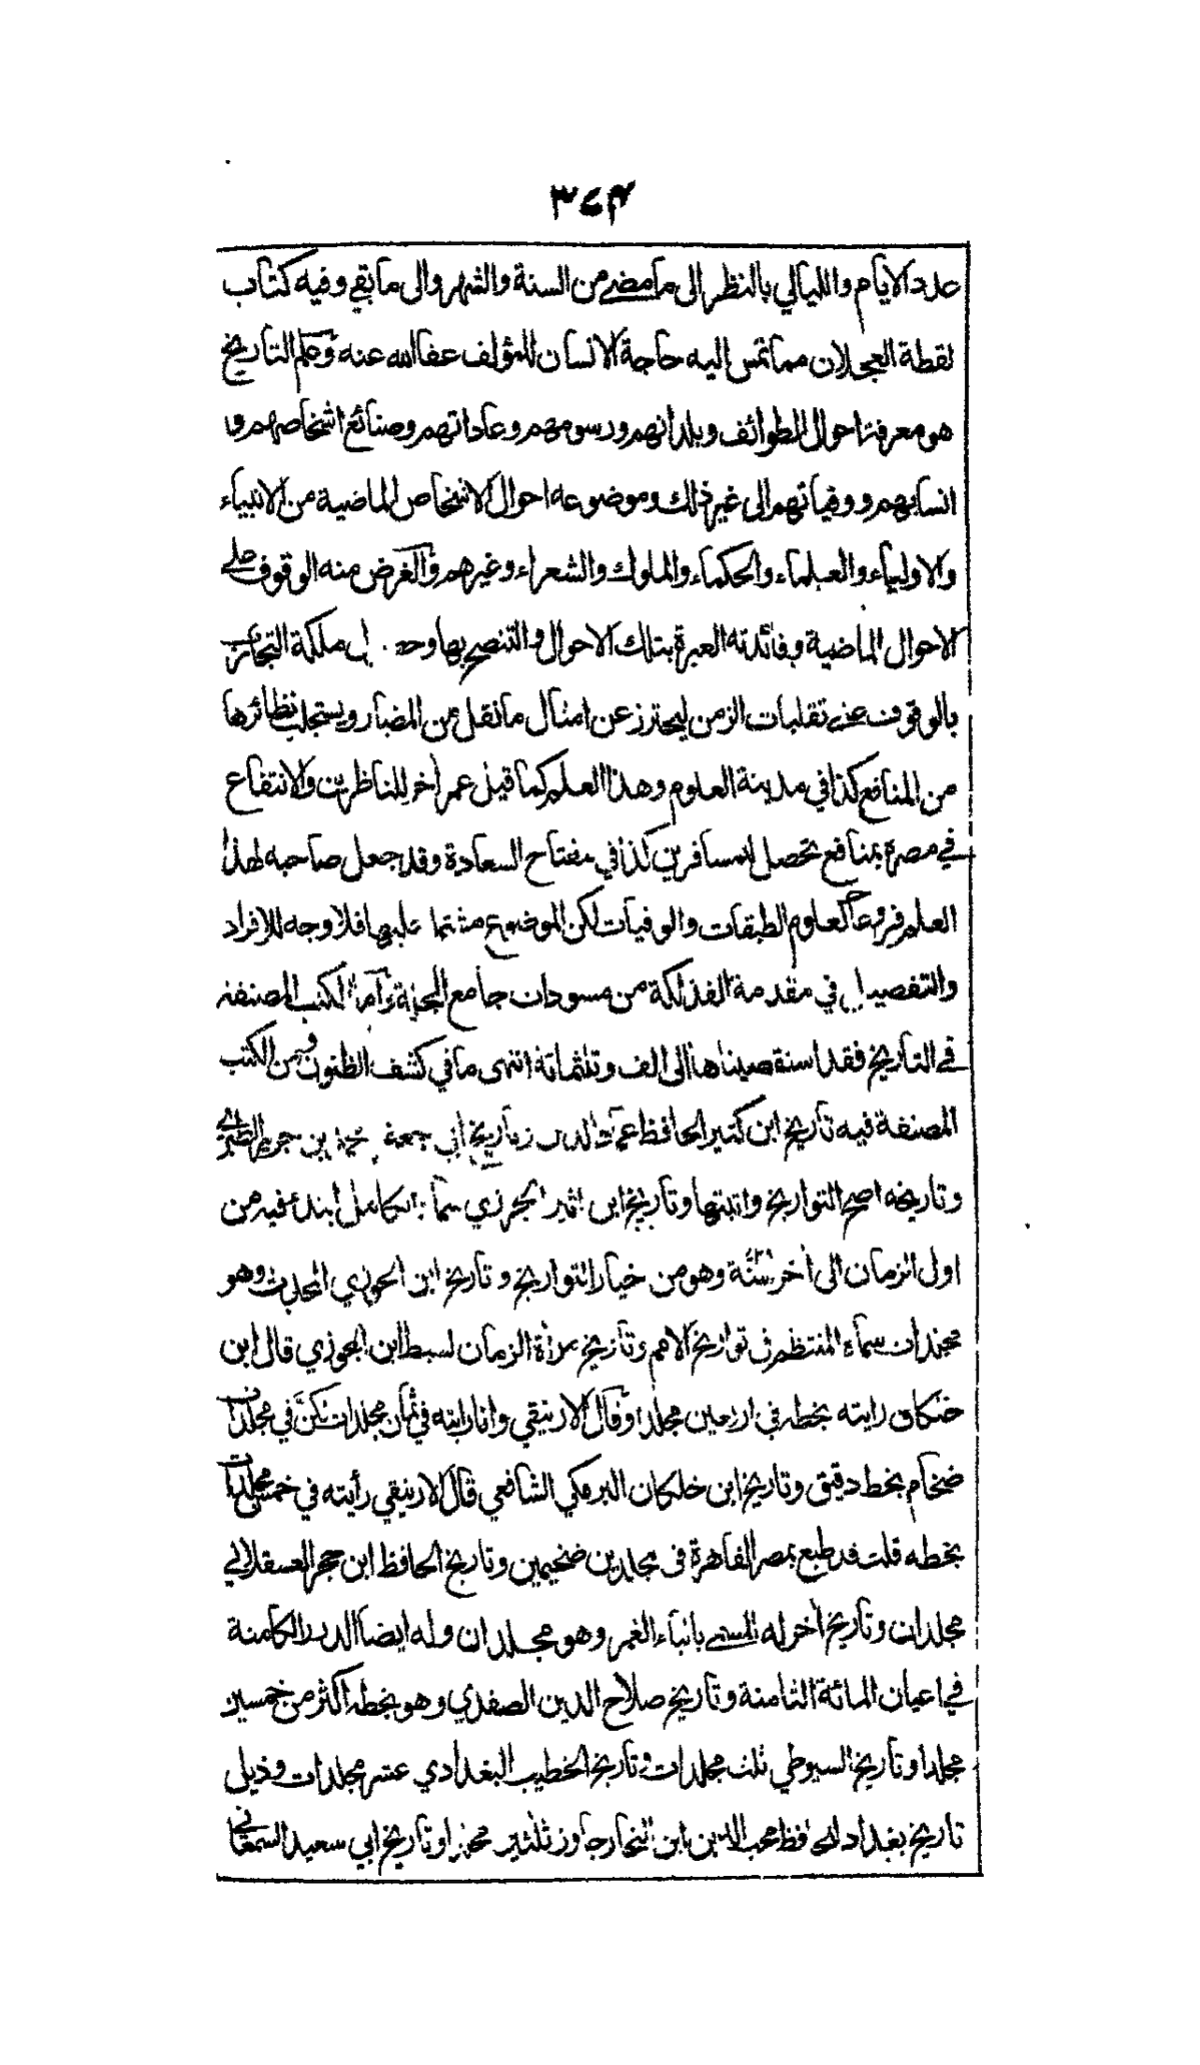 ٣٤٢
عدد الايام والليالي بالنظر الى ما مضى من السنة والشهر والى ما بقي وفيه كتاب
لقطة العجلان مما تمس اليه حاجة الانسان للمؤلف عفا الله عنه وعلم التاريخ
هو معرفة احوال الطوائف وبلدانهم ورسومهم وعاداتهم وصنائع اشخاصهم و
انسابهم ووفياتهم الى غير ذلك وموضوعه احوال الاشخاص الماضية من الانبياء
والاولياء والعلماء والحكماء والملوك والشعراء وغيرهم والغرض منه الوقوف على
الاحوال الماضية وفائدته العبرة بتلك الاحوال والتنصح بها وحصول ملكة التجارب
بالوقوف على تقلبات الزمن ليحترز عن امثال ما نقل من المضار ويستجلب نظائرها
من المنافع كذا في مدينة العلوم وهذا العلم كما قيل عمر أخر للناظرين والانتفاع
في مصره بمنافع تحصل للمسافرين كذا في مفتاح السعادة وقد جعل صاحبه لهذا
العلم فروعا كعلوم الطبقات والوفيات لكن الموضوع مشتمل عليها فلا وجه للافراد
والتفصيل في مقدمة الفذلكة من مسودات جامع المجلة واما الكتب المصنفة
في التاريخ فقد استقصيناها الى الف وثلثمائة انتهى ما في كشف الظنون ومن الكتب
المصنفة فيه تاريخ ابن كثير الحافظ عماد الدين وتاريخ ابي جعفر محمد بن جرير الطبري
وتاريخه اصح التواريخ واثبتها وتاريخ ابن اثير الجزري سماه الكامل ابتدء فيه من
اول الزمان الى أخر سنة وهو من خيار التواريخ وتاريخ ابن الجوزي المحدث وهو
مجلدان سماه المنتظم في تواريخ الامم وتاريخ مرأة الزمان لسبط ابن الجوزي قال ابن
خلكان رايته بخطه في اربعين مجلدا وقال الارنيقي وانا رايته في ثمان مجلدات لكن في مجلدات
ضخام بخط دقيق وتاريخ ابن خلكان البرمكي الشافعي قال الارنيقي رأيته في خمس مجلدات
بخطه قلت قد طبع بمصر القاهرة في مجلدين ضخيمين وتاريخ الحافظ ابن حجر العسقلاني
مجلدان وتاريخ أخر له المسمى بانباء الغمر وهو مجلدان وله ايضا الدرر الكامنة
في اعيان المائة الثامنة وتاريخ صلاح الدين الصفدي وهو بخطه اكثر من خمسين
مجلدا وتاريخ السيوطي ثلث مجلدات وتاريخ الخطيب البغدادي عشر مجلدات وذيل
تاريخ بغداد للحافظ محب الدين بن النجار جاوز ثلثين مجلدا وتاريخ ابي سعيد السمعاني